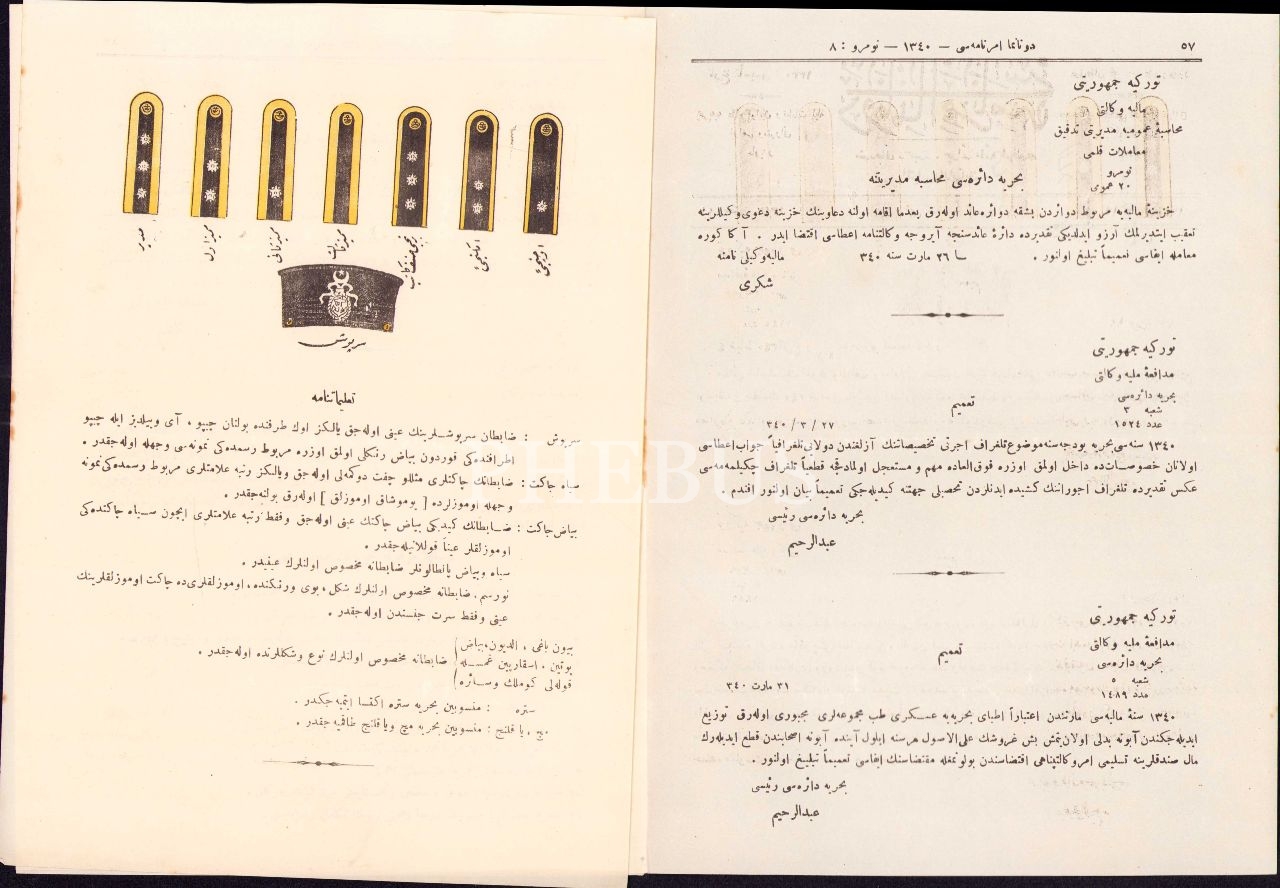 ٥٧
دوناما امرنامه‌سی — ١٣٤٠ — نومرو : ٨
توركيه جمهوريتی
ماليه وكالتی
محاسبۀ عموميه مديريتی تدقيق
معاملات قلمی
نومرو
٢٠ عمومی
بحريه دائره‌سی محاسبه مديريتنه
خزينۀ ماليه‌يه مربوط دوائردن بشقه دوائره عائد اوله‌رق بعدما اقامه اولنه دعاوينك خزينه دعوی وكيللرينه
تعقيب ايتديرلمك آرزو ايدلديكی تقديرده دائرۀ عائده‌سنجه آيروجه وكالتنامه اعطاسی اقتضا ايدر . آ كا كوره
معامله ايفاسی تعميماً تبليغ اولنور .
٢٦ مارت سنه ٣٤٠
ماليه وكيلی نامنه
شكری
توركيه جمهوريتی
مدافعۀ مليه وكالتی
بحريه دائره‌سی
شعبه ٣
عدد ١٥٢٤
تعميم
٢٧ / ٣ / ٣٤٠
١٣٤٠ سنه‌سی بحريه بودجه‌سنه موضوع تلغراف اجرتی تخصيصاتنك آزلغندن دولايی تلغرافياً جواب اعطاسی
اولانان خصوصات‌ده داخل اولمق اوزره فوق‌العاده مهم و مستعجل اولمادقجه قطعياً تلغراف چكيلمه‌مه‌سی
عكس تقديرده تلغراف اجوراتنك كشيده ايدنلردن تحصيلی جهتنه كيديله‌جكی تعميماً بيان اولنور افندم .
بحريه دائره‌سی رئيسی
عبدالرحيم
توركيه جمهوريتی
مدافعۀ مليه وكالتی
بحريه دائره‌سی
شعبه ٥
عدد ١٤٨٩
تعميم
٣١ مارت ٣٤٠
١٣٤٠ سنۀ ماليه‌سی مارتندن اعتباراً اطبای بحريه‌يه عسكری طب مجموعه‌لری مجبوری اوله‌رق توزيع
ايديله‌جكندن آبونه بدلی اولان يتمش بش غروشك علی‌الاصول هرسنه ايلول آينده آبونه اصحابندن قطع ايديله‌رك
مال صندقلرينه تسليمی امر وكالتپناهی اقتضاسندن بولونمغله مقتضاسنك ايفاسی تعميماً تبليغ اولنور .
بحريه دائره‌سی رئيسی
عبدالرحيم
مميز اول
مميز ثانی
مميز ثالث
سرپوش
تعليماتنامه
سرپوش : ضابطان سرپوشلرينك عينی اوله‌جق يالكز اوك طرفنده بولنان چيپو ، آی وييلديز ايله چيپو
اطرافنده‌كی قوردون بياض رنكلی اولمق اوزره مربوط رسمده‌كی نمونه‌سی وجهله اوله‌جقدر .
سياه جاكت : ضابطانك جاكتلری مثللو چفت دوكمه‌لی اوله‌جق ويالكز رتبه علامتلری مربوط رسمده‌كی نمونه
وجهله اوموزلرده [ يوموشاق اوموزلق ] اوله‌رق بولنه‌جقدر .
بياض جاكت : ضابطانك كيديكی بياض جاكتك عينی اوله‌جق وفقط رتبه علامتلری ايچون سياه جاكتده‌كی
اوموزلقلر عيناً قوللانيله‌جقدر .
سياه وبياض پانطالونلر ضابطانه مخصوص اولنلرك عينيدر .
ضابطانه مخصوص اولنلرك شكل ، بوی ورنكنده ، اوموزلقلری‌ده جاكت اوموزلقلرينك
عينی وفقط سرت جنسندن اوله‌جقدر .
بيون باغی ، الديون ، بياض
بوتين ، اسقارپين
قوله‌لی كوملك وسائره
ضابطانه مخصوص اولنلرك نوع وشكللرنده اوله‌جقدر .
ستره : منسوبين بحريه ستره اكتسا ايتميه‌جكدر .
مچ ، يا قلنج : منسوبين بحريه مچ ويا قلنج طاقميه‌جقدر .
THEBUN